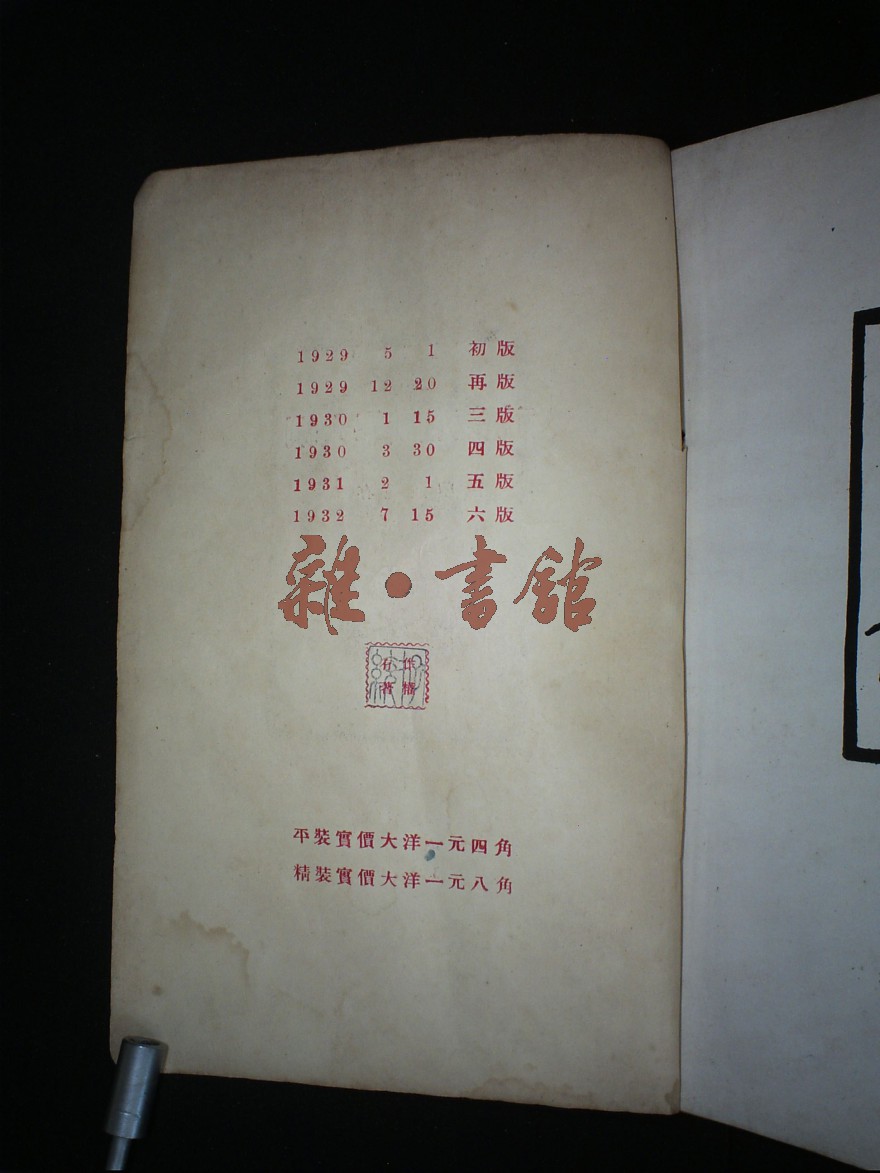 1929 5 1 初版
1929 12 20 再版
1930 1 15 三版
1930 3 30 四版
1931 2 1 五版
1932 7 15 六版
雜·書館
平裝實價大洋一元四角
精裝實價大洋一元八角